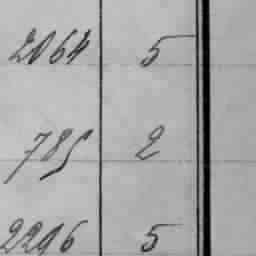 2064 5
785 2
2296 5